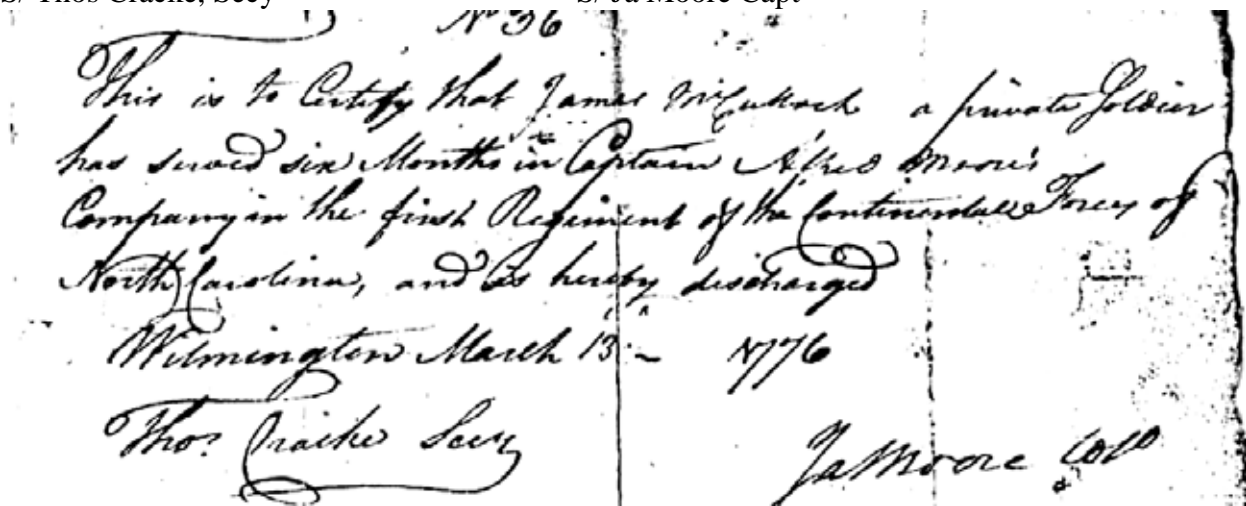 S/ Thos Cracke, Secy S/ Ja Moore Capt
No 36
This is to Certify that James McCulloch a private Soldier
has served six Months in Captain Alfred Moore's
Company in the first Regiment of the Continental Forces of
North Carolina, and is hereby discharged
Wilmington March 13 - 1776
Thos. Cracke Secy
Ja Moore Coll